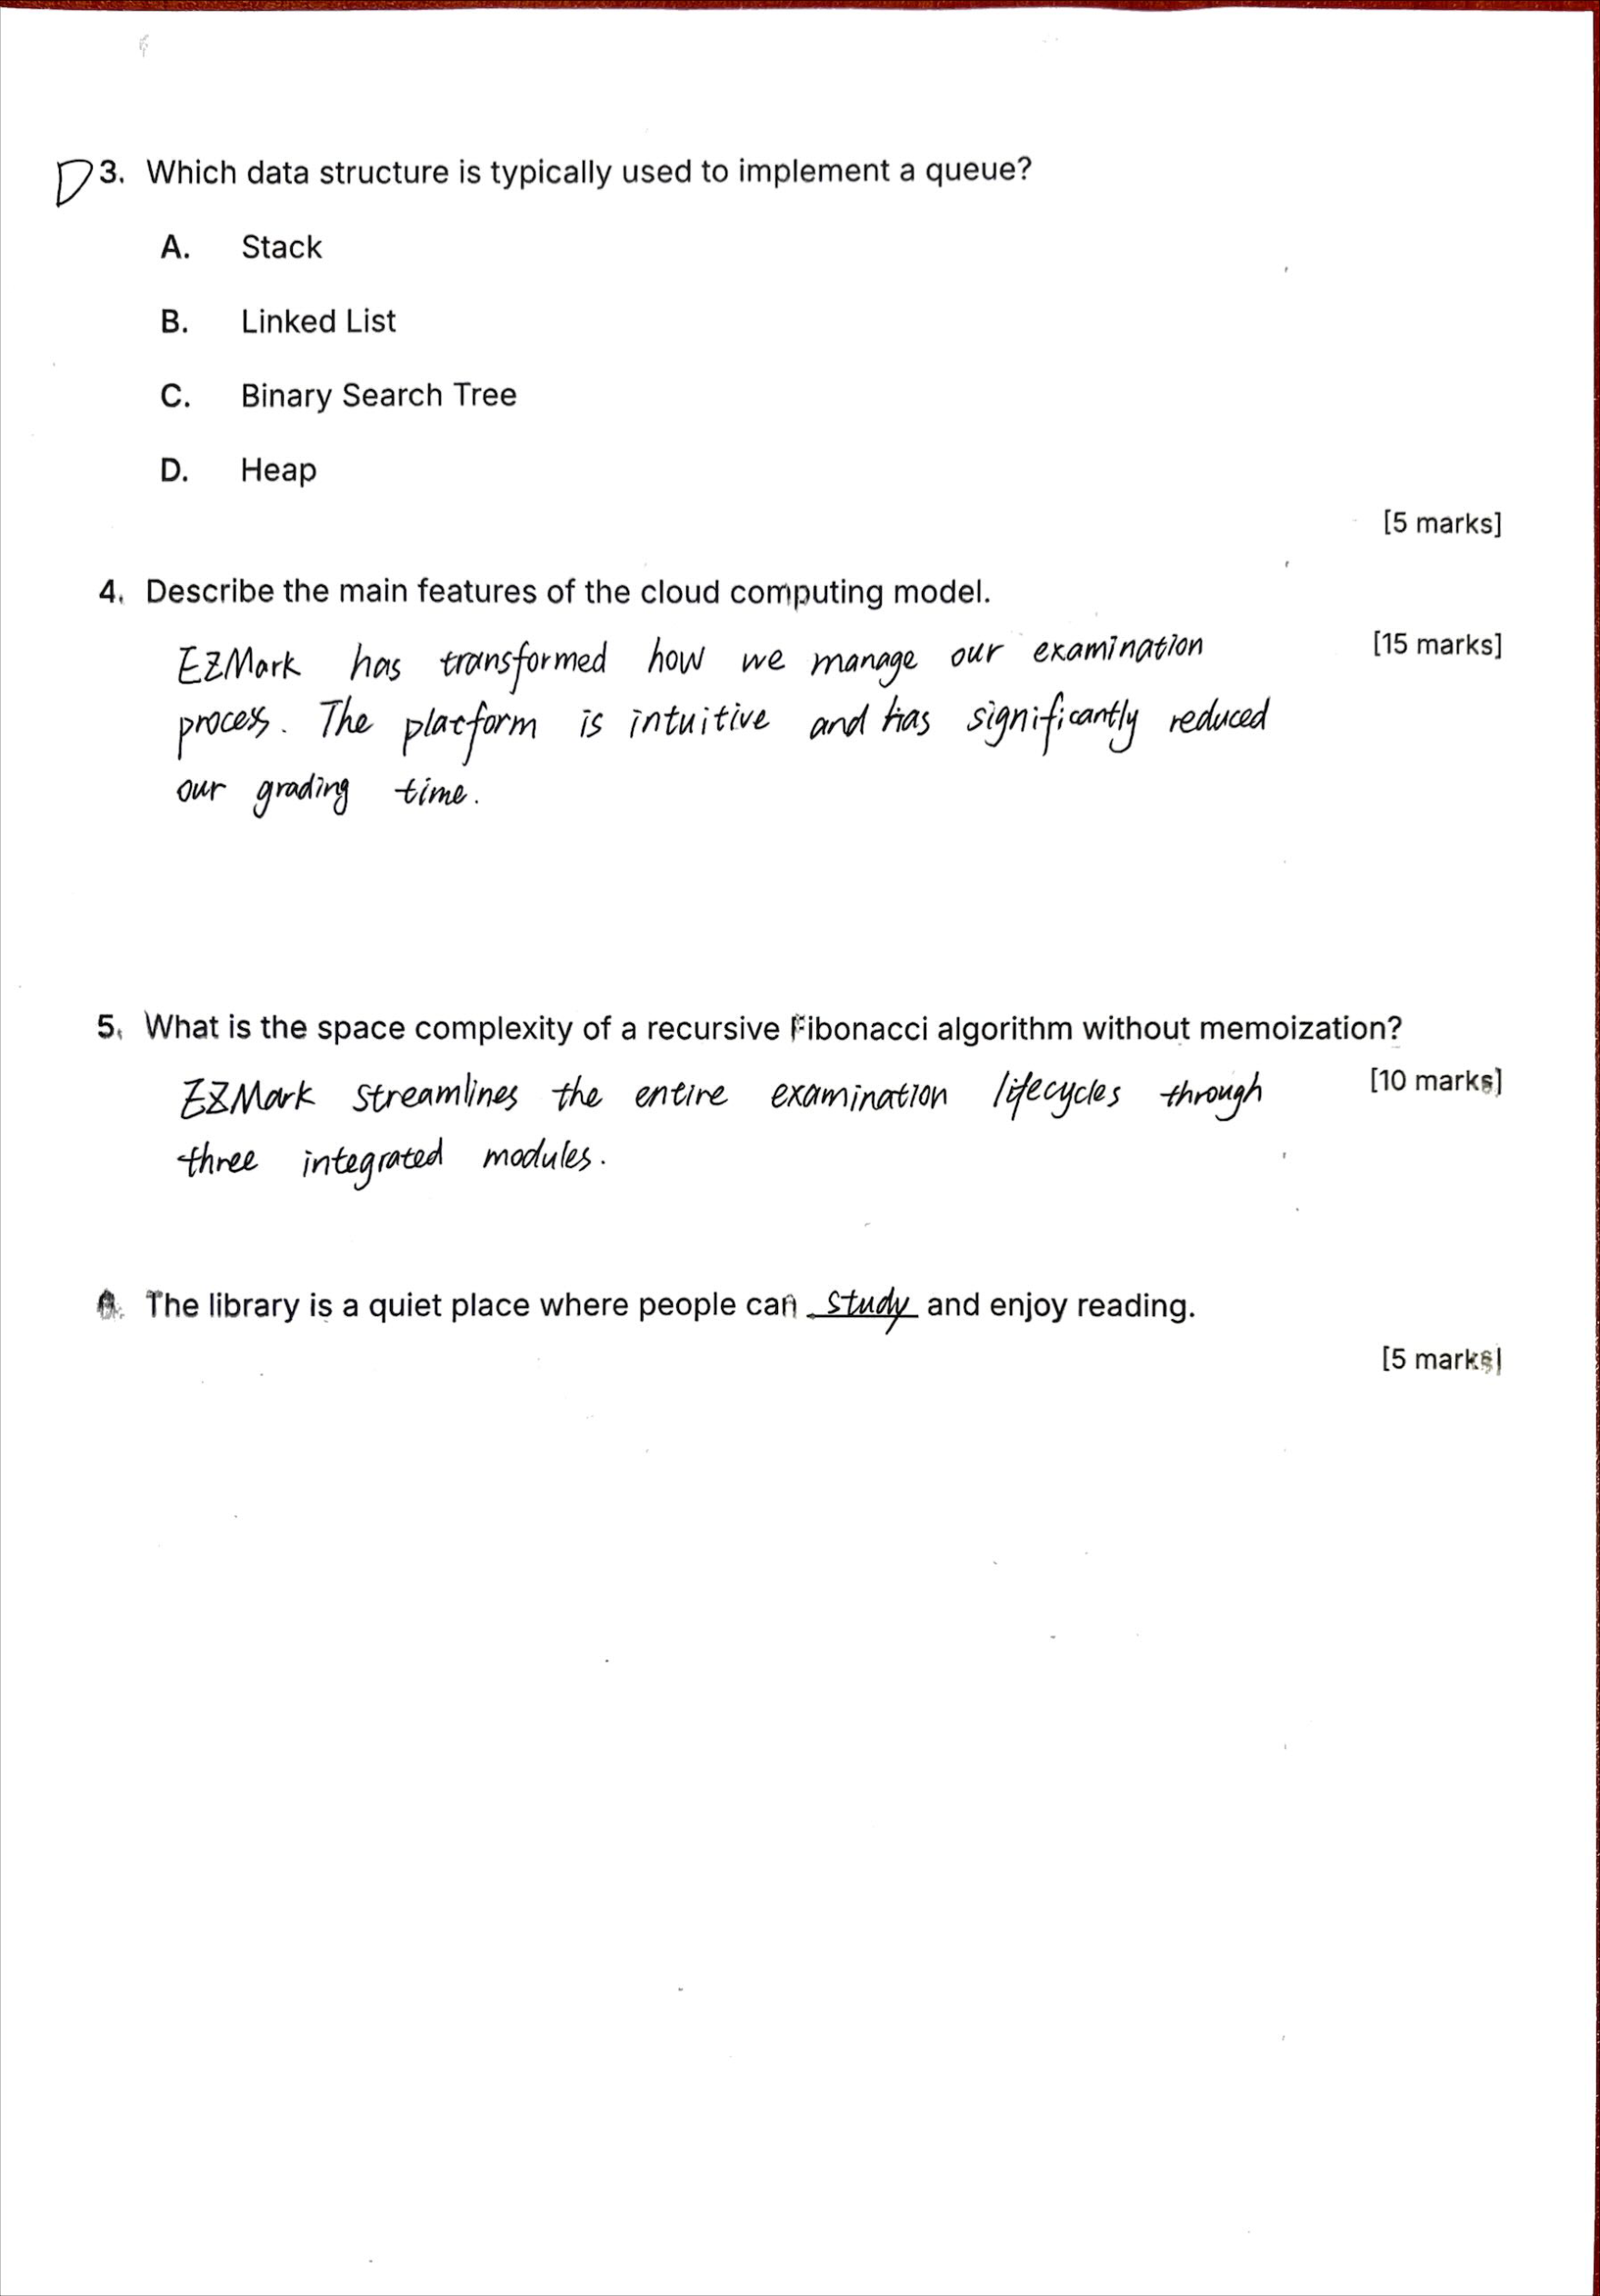 D 3. Which data structure is typically used to implement a queue?
A. Stack
B. Linked List
C. Binary Search Tree
D. Heap
[5 marks]
4. Describe the main features of the cloud computing model.
[15 marks]
EZMark has transformed how we manage our examination
process. The platform is intuitive and has significantly reduced
our grading time.
5. What is the space complexity of a recursive Fibonacci algorithm without memoization?
[10 marks]
EZMark streamlines the entire examination lifecycles through
three integrated modules.
The library is a quiet place where people can study and enjoy reading.
[5 marks]